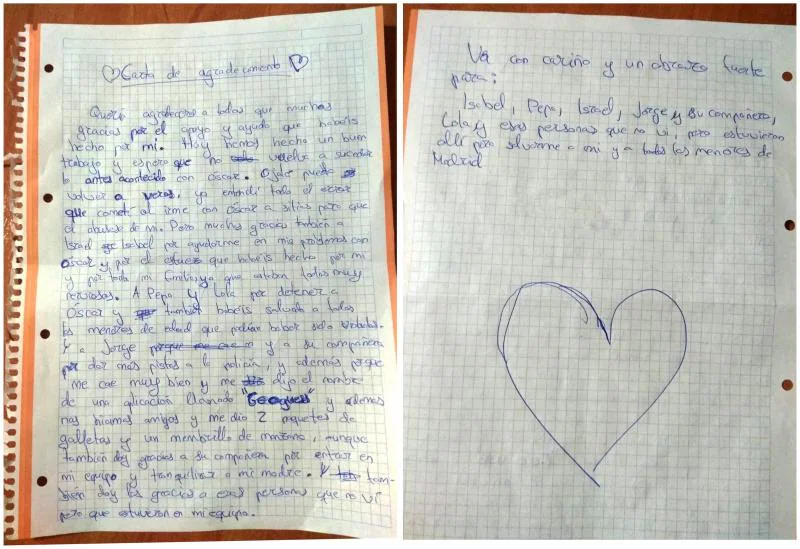 Carta de agradecimiento
Quería agradeceros a todos que muchas
gracias por el apoyo y ayuda que habeis
hecho por mi. Hoy hemos hecho un buen
trabajo y espero que no vuelve a suceder
lo antes acontecido con oscar. Ojala pueda
volver a veros, yo entendí todo el error
que cometí al irme con oscar a sitios para que
el abusara de mi. Pero muchas gracias también a
Israel Isabel por ayudarme en mis problemas con
oscar y por el que habeis hecho por mi
y por toda mi familia ya que estaban todos muy
nerviosos. A Pepa y Lola por detener a
Oscar y tambien habeis salvado a todos
los menores de edad que podrian haber sido violados.
Y a Jorge porque me cae y a su compañera
por dar mas pistas a la policia, y además porque
me cae muy bien y me dijo el nombre
de una aplicación llamada "Geogues" y ademas
nos hicimos amigos y me dio 2 paquetes de
galletas y un membrillo de manzana, aunque
también doy gracias a su compañera por entrar en
mi equipo y tranquilizar a mi madre. Y tam-
bién doy las gracias a esas personas que no vi
pero que estuvieron en mi equipo.
Va con cariño y un abrazo fuerte
para:
Isabel, Pepa, Israel, Jorge y su compañera,
Lola y esas personas que no vi, pero estuvieron
allí para salvarme a mi y a todos los menores de
Madrid